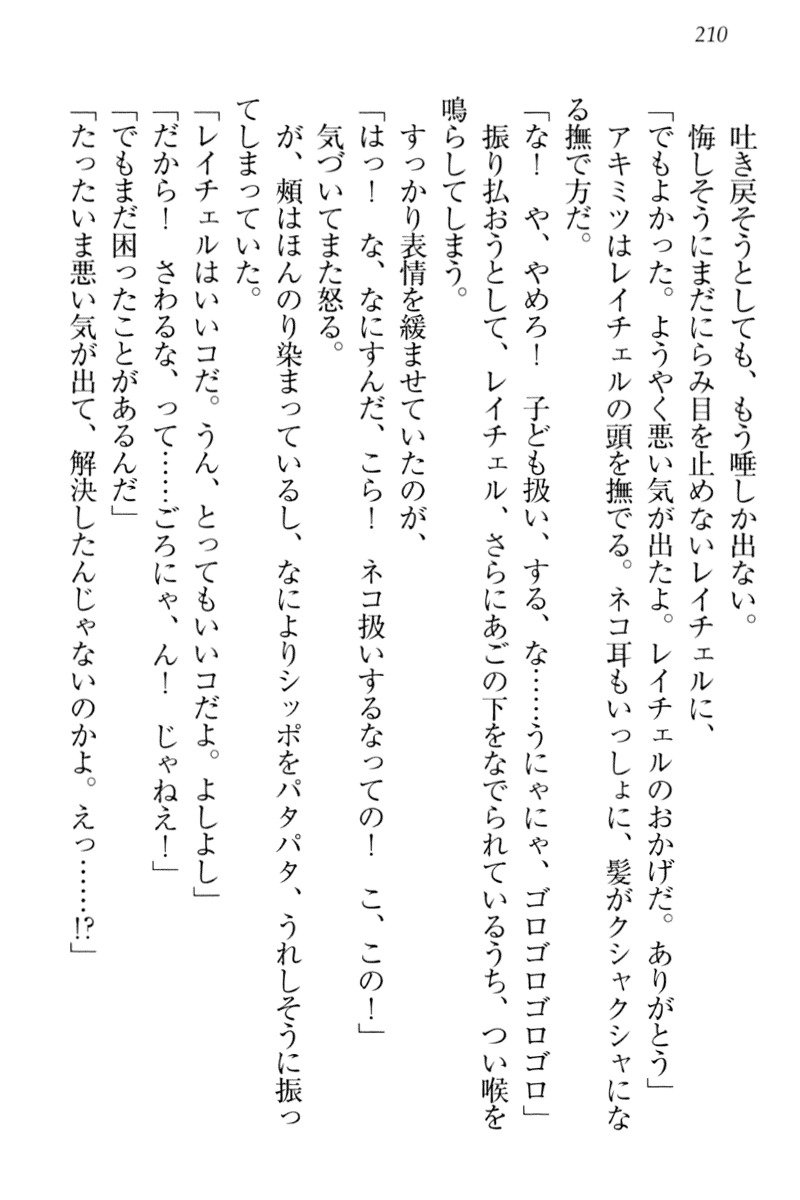 210
吐き戻そうとしても、もう唾しか出ない。
悔しそうにまだにらみ目を止めないレイチェルに、
「でもよかった。ようやく悪い気が出たよ。レイチェルのおかげだ。ありがとう」
アキミツはレイチェルの頭を撫でる。ネコ耳もいっしょに、髪がクシャクシャにな
る撫で方だ。
「な！　や、やめろ！　子ども扱い、する、な……うにゃにゃ、ゴロゴロゴロゴロ」
振り払おうとして、レイチェル、さらにあごの下をなでられているうち、つい喉を
鳴らしてしまう。
すっかり表情を緩ませていたのが、
「はっ！　な、なにすんだ、こら！　ネコ扱いするなっての！　こ、この！」
気づいてまた怒る。
が、頬はほんのり染まっているし、なによりシッポをパタパタ、うれしそうに振っ
てしまっていた。
「レイチェルはいいコだ。うん、とってもいいコだよ。よしよし」
「だから！　さわるな、って……ごろにゃ、ん！　じゃねえ！」
「でもまだ困ったことがあるんだ」
「たったいま悪い気が出て、解決したんじゃないのかよ。えっ……!?」